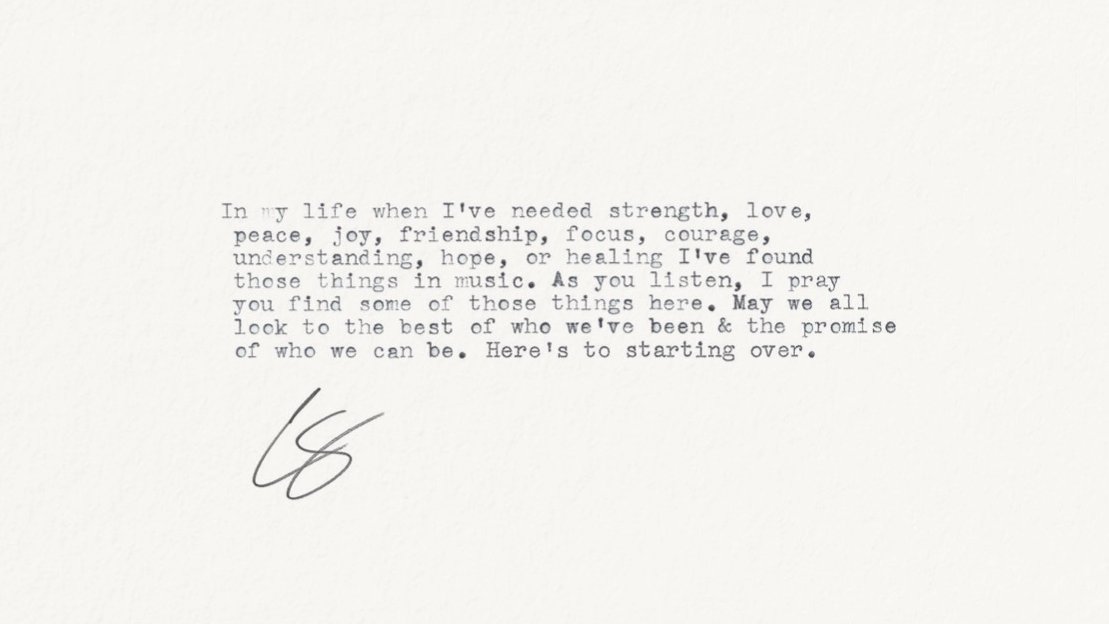 In my life when I've needed strength, love,
peace, joy, friendship, focus, courage,
understanding, hope, or healing I've found
those things in music. As you listen, I pray
you find some of those things here. May we all
look to the best of who we've been & the promise
of who we can be. Here's to starting over.